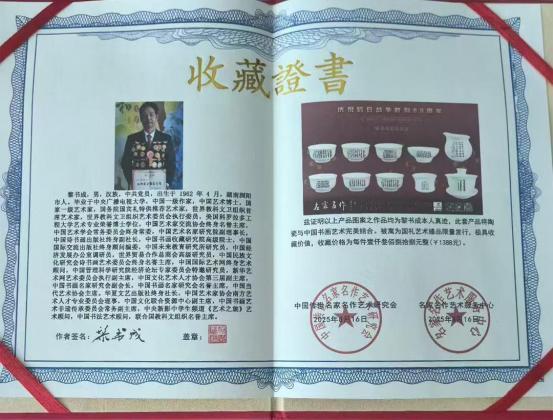 收藏證書
黎书成，男，汉族，中共党员，出生于1962年4月，湖南浏阳
市人，毕业于中央广播电视大学，中国一级作家，中国艺术博士，国
家一级艺术家，国务院国宾礼特供推荐艺术家，世界教科文卫组织首
席艺术家，世界教科文卫组织艺术委员会执行委员，美国科罗拉多工
程大学艺术专业荣誉博士学位，中国艺术家交流协会终身名誉主席，
中国艺术学会常务委员会终身常委，中国艺术名家研究院副理事长，
中国诗书画出版社终身副社长，中国书画收藏研究院高级院士，中国
国际交流出版社终身顾问编委，中国未来研究会
经济发展办公室调研员，世界贸易合作总商会高级研究员，中国民族
文化研究会诗书画艺术委员会终身名誉主席，中国国际艺术网终身艺术
顾问，中国管理科学研究院经济论坛专家委员会特邀研究员，新华艺
术网艺术委员会执行副主席，中国文化艺术人才协会第三届副主席，
中国书画名家研究会副会长，中国书画名家研究会名誉主席，中国当
代艺术协会主席，华夏文艺出版社终身社长，中国艺术家协会南方艺
术人才专业委员会理事，中国文化联合会资源中心副主席，中国书画艺
术非遗传承委员会常务副主席，中央新影中学生频道《艺术之旅》艺
术顾问，中国书法艺术顾问，联合国教科文组织名誉主席。
作者签名：黎书成 盖章：
庆祝抗日战争胜利80周年
名家名作
兹证明以上产品图案之作品均为黎书成本人真迹，此套产品将陶
瓷与中国书画艺术完美结合，被寓为国礼艺术臻品限量发行，极具收
藏价值，收藏价格为每件壹仟叁佰捌拾捌元整（￥1388元）。
中国传世名家名作艺术研究会
2025年8月16日
名家名作艺术服务中心
2025年8月16日